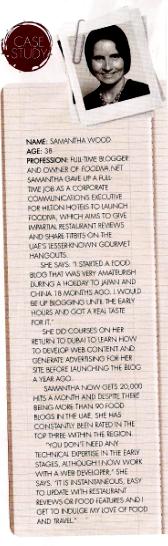 CASE
STUDY
NAME: SAMANTHA WOOD
AGE: 38
PROFESSION: FULL-TIME BLOGGER
AND OWNER OF FOODIVA.NET
SAMANTHA GAVE UP A FULL-
TIME JOB AS A CORPORATE
COMMUNICATIONS EXECUTIVE
FOR HILTON HOTELS TO LAUNCH
FOODIVA, WHICH AIMS TO GIVE
IMPARTIAL RESTAURANT REVIEWS
AND SHARE TITBITS ON THE
UAE'S LESSER-KNOWN GOURMET
HANGOUTS.
SHE SAYS: "I STARTED A FOOD
BLOG THAT WAS VERY AMATEURISH
DURING A HOLIDAY TO JAPAN AND
CHINA 18 MONTHS AGO. I WOULD
BE UP BLOGGING UNTIL THE EARLY
HOURS AND GOT A REAL TASTE
FOR IT."
SHE DID COURSES ON HER
RETURN TO DUBAI TO LEARN HOW
TO DEVELOP WEB CONTENT AND
GENERATE ADVERTISING FOR HER
SITE BEFORE LAUNCHING THE BLOG
A YEAR AGO.
SAMANTHA NOW GETS 20,000
HITS A MONTH AND DESPITE THERE
BEING MORE THAN 90 FOOD
BLOGS IN THE UAE, SHE HAS
CONSTANTLY BEEN RATED IN THE
TOP THREE WITHIN THE REGION.
"YOU DON'T NEED ANY
TECHNICAL EXPERTISE IN THE EARLY
STAGES, ALTHOUGH I NOW WORK
WITH A WEB DEVELOPER," SHE
SAYS. "IT IS INSTANTANEOUS, EASY
TO UPDATE WITH RESTAURANT
REVIEWS OR FOOD FEATURES AND I
GET TO INDULGE MY LOVE OF FOOD
AND TRAVEL."